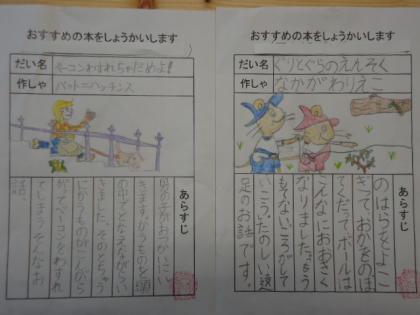 おすすめの本をしょうかいします
だい名 ベーコンわすれちゃだめよ!
作しゃ パット=ハッチンス
あらすじ
男の子がおかいにい
きます。かうものを頭
の中でとなえながらい
きました。そのとちゅう
にかうものがこんがら
がってベーコンをわすれ
てしまう、そんなお
話。
おすすめの本をしょうかいします
だい名 ぐりとぐらのえんそく
作しゃ なかがわりえこ
あらすじ
のはらをよこ
ぎって、おかをのぼ
てくだって、ボールは
こんなにおおきく
なりました。もう
もてない、ころがして
いこう。たのしい遠
足のお話です。